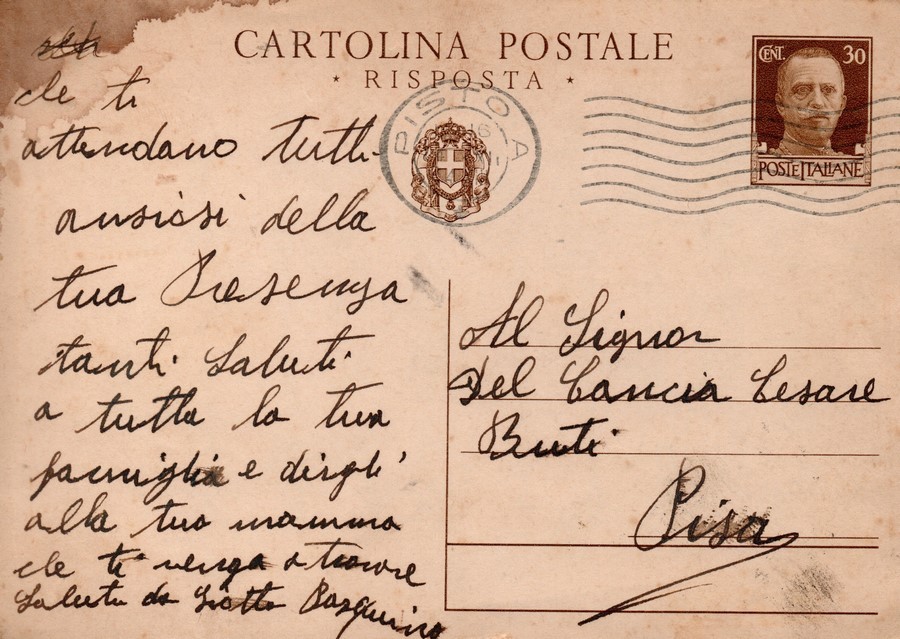 CARTOLINA POSTALE
RISPOSTA
CENT. 30
POSTE ITALIANE
PISTOIA
16
che ti
attendano tutti
ansiosi della
tua Presenza
tanti Saluti
a tutta la tua
famiglia e dirgli
alla tua mamma
che ti venga a trovare
Saluti da Giotto Pasquino
Al Signor
Del Cancia Cesare
Buti
Pisa